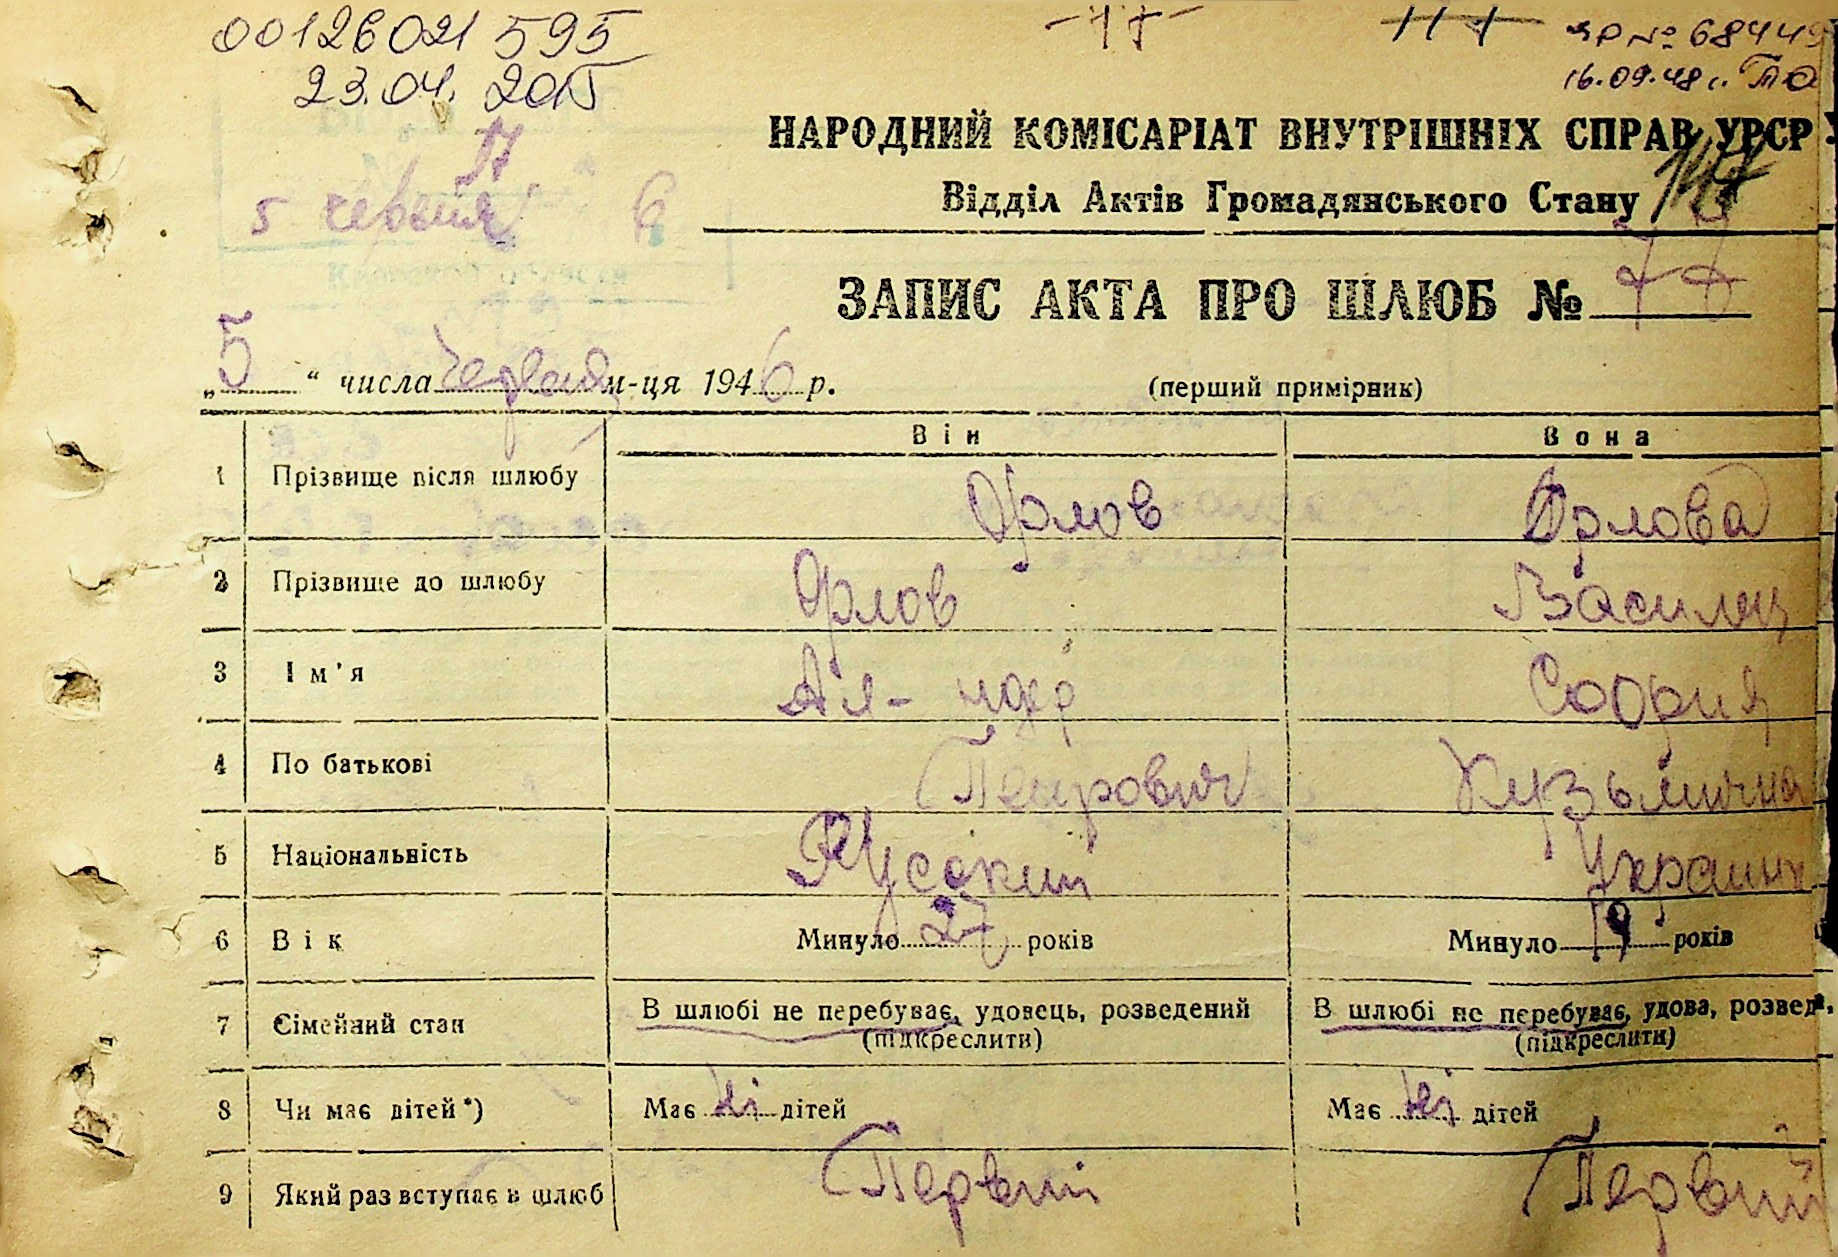 00126021595
23.04. 2015
16.09.48 г.
НАРОДНИЙ КОМІСАРІАТ ВНУТРІШНІХ СПРАВ УРСР
Відділ Актів Громадянського Стану
5 червня 6
ЗАПИС АКТА ПРО ШЛЮБ №
„5“ числа червня м-ця 1946 р. (перший примірник)
Він Вона
1 Прізвище після шлюбу Орлов Орлова
2 Прізвище до шлюбу Орлов Василец
3 Ім'я Ал-ндер София
4 По батькові Петрович Кузьминична
5 Національність Русский Украин
6 Вік Минуло 27 років Минуло 19 років
7 Сімейний стан В шлюбі не перебуває, удовець, розведений (підкреслити) В шлюбі не перебуває, удова, розвед. (підкреслити)
8 Чи має дітей*) Має ні дітей Має ні дітей
9 Який раз вступає в шлюб Первий Первий